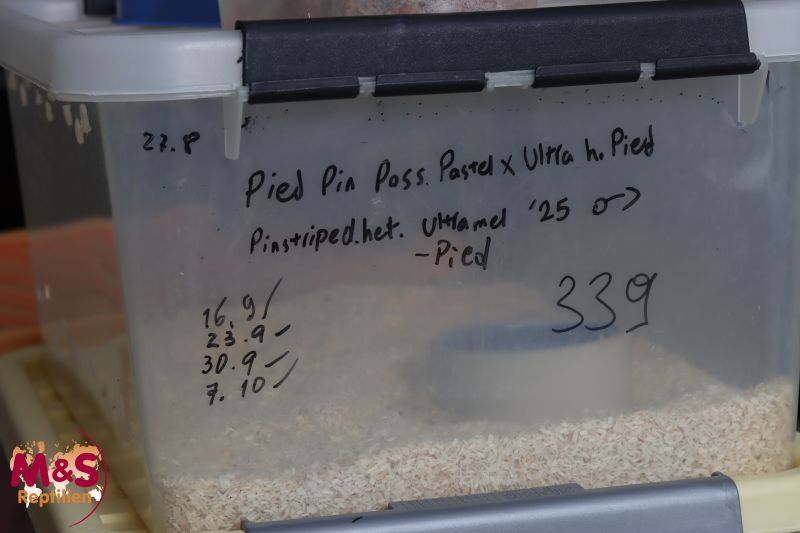 27.8
Pied Pin Poss. Pastel x Ultra h. Pied
Pinstriped.het. Ultramel '25 ♂
-Pied
339
16.9 ✓
23.9 ✓
30.9 ✓
7.10 ✓
M&S
Reptilien